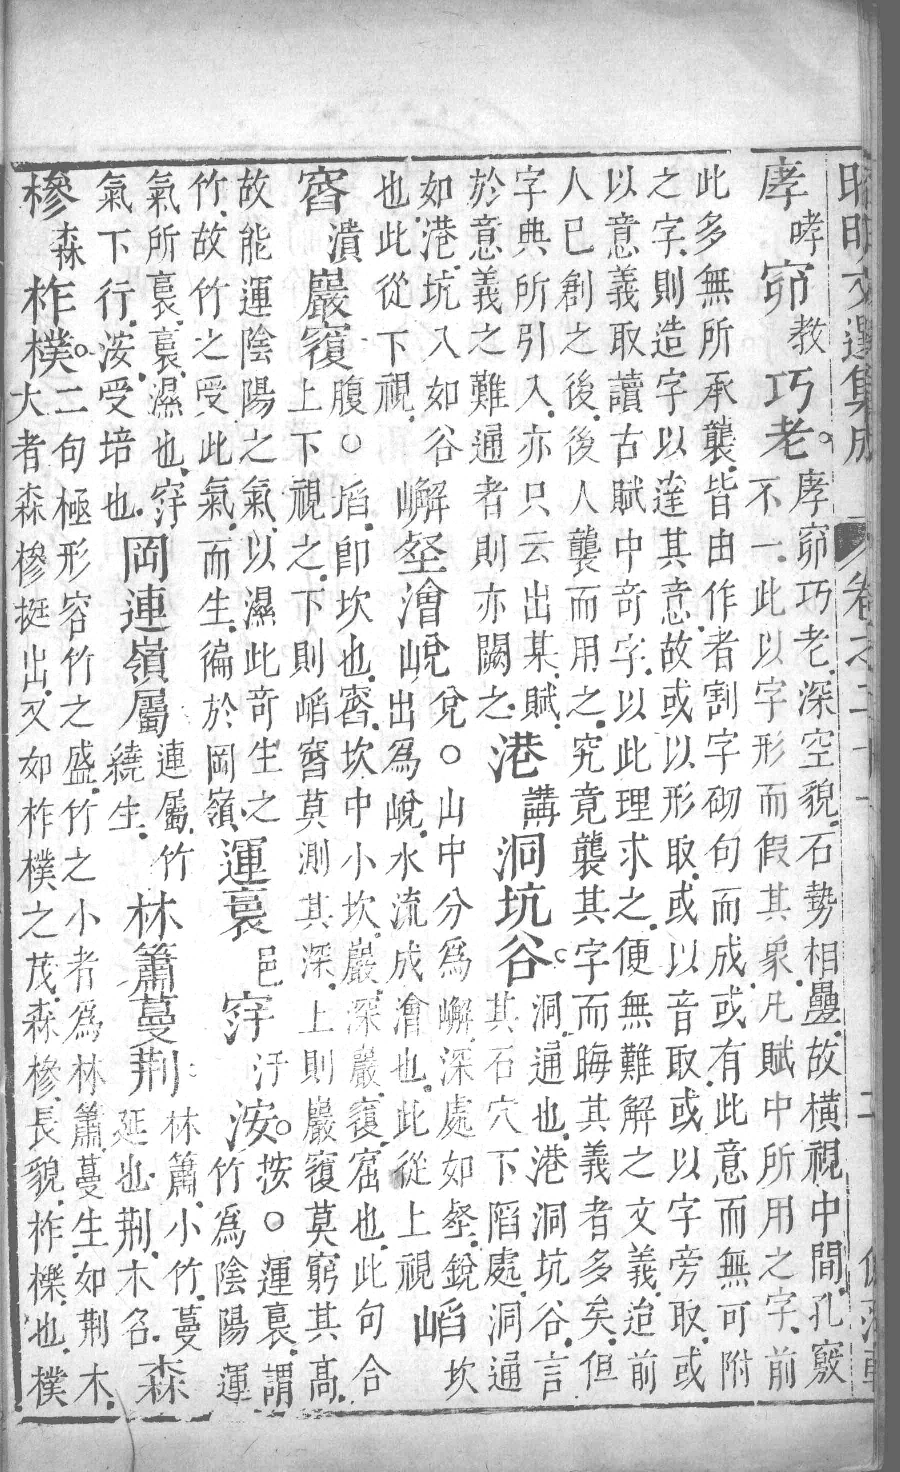 昭明文選集成 卷之二十一 二
庨哮窌教巧老。庨窌巧老深空貌石勢相疊故橫視中間孔竅
不一此以字形而假其象凡賦中所用之字前
此多無所承襲皆由作者割字砌句而成或有此意而無可附
之字則造字以達其意故或以形取或以音取或以字旁取或
以意義取讀古賦中奇字以此理求之便無難解之文義迨前
人已創之後後人襲而用之究竟襲其字而晦其義者多矣但
字典所引入亦只云出某賦
於意義之難通者則亦闕之
港講洞坑谷。洞通也港洞坑谷言
其石穴下陷處洞通
如港坑入如谷
也此從下視
嶰壑澮㟋兌○山中分為嶰深處如壑銳
出為㟋水流成澮也此從上視
㟅坎
窞潰巖𥨍腹○㟅即坎也窞坎中小坎巖深巖𥨍窟也此句合
上下視之下則㟅窞莫測其深上則巖𥨍莫窮其高
故能運陰陽之氣以濕此奇生之
竹故竹之受此氣而生徧於岡嶺
運裛邑窏汙洝。按○運裛謂
竹為陰陽運
氣所裛裛濕也窏
氣下行洝受培也
岡連嶺屬連屬竹
繞生
林簫蔓荊林簫小竹蔓
延也荊木名
森
槮森柞樸。二句極形容竹之盛竹之小者為林簫蔓生如荊木
大者森槮挺出又如柞樸之茂森槮長貌柞櫟也樸